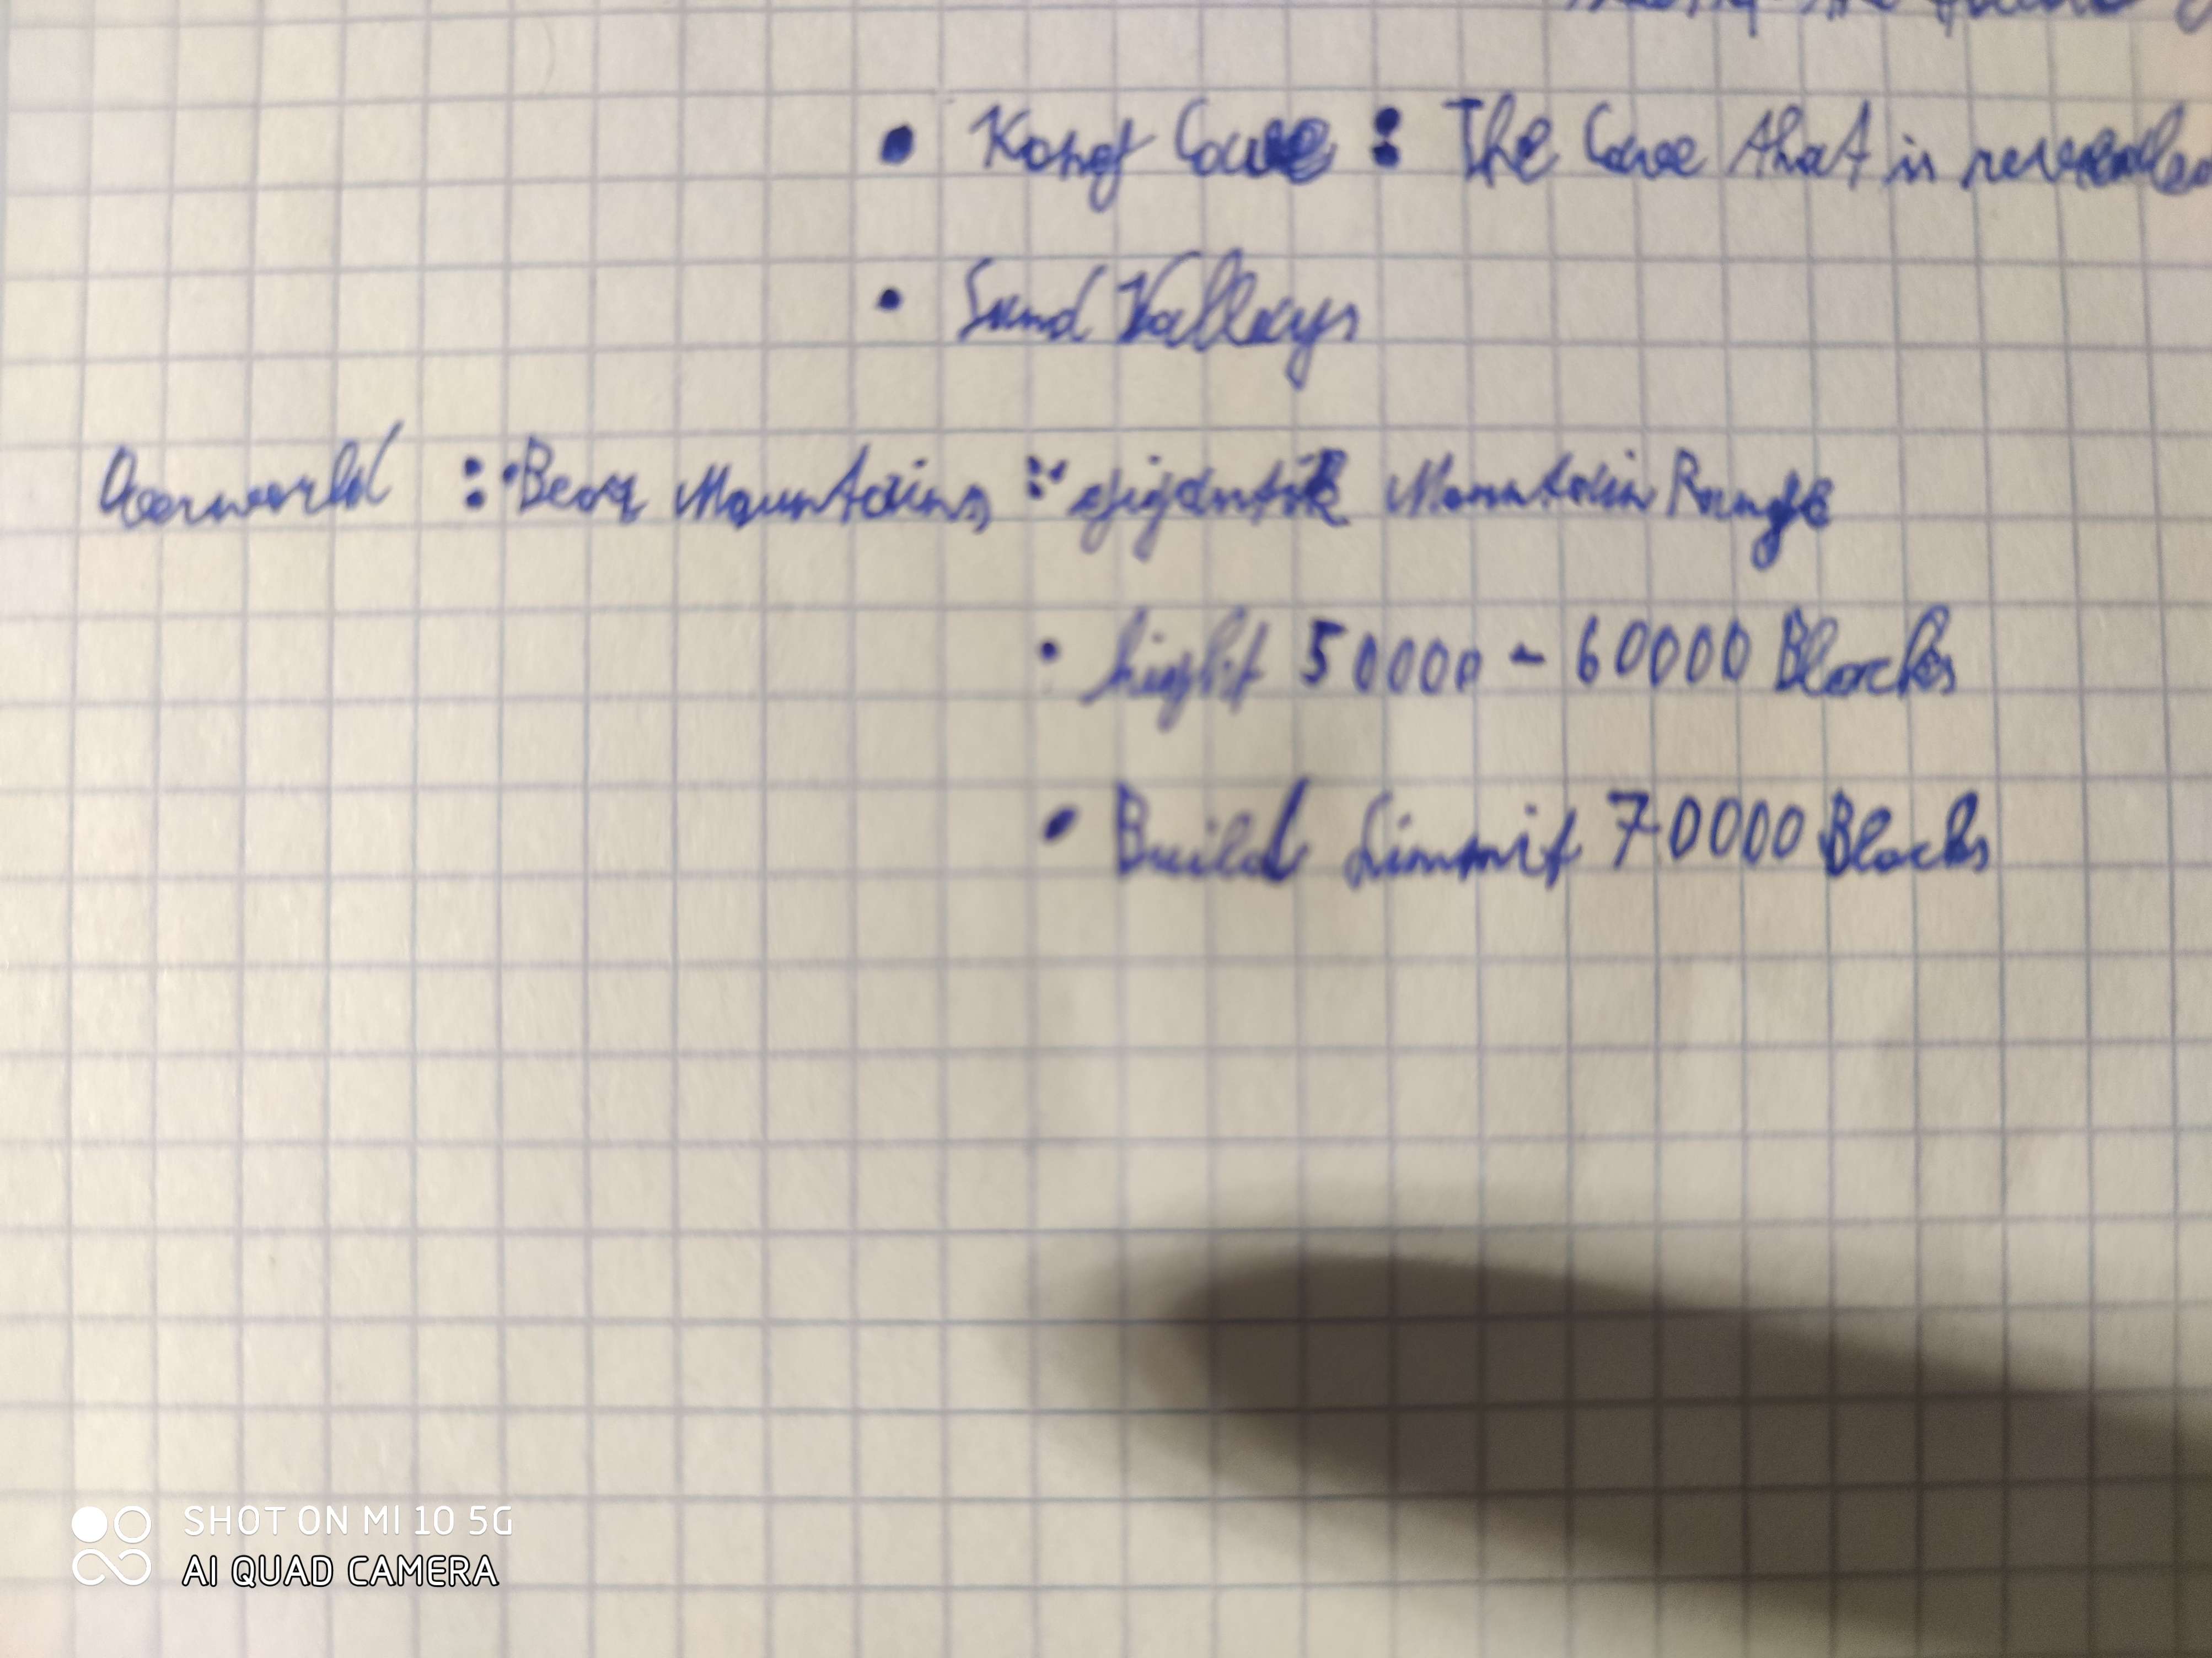 • Kong Cave : The Cave that is revealed
• Sand Valleys
Overworld : • Bear Mountains : • gigantik Mountain Range
• hight 50000 - 60000 Blocks
• Build Limmit 70000 Blocks
SHOT ON MI 10 5G
AI QUAD CAMERA